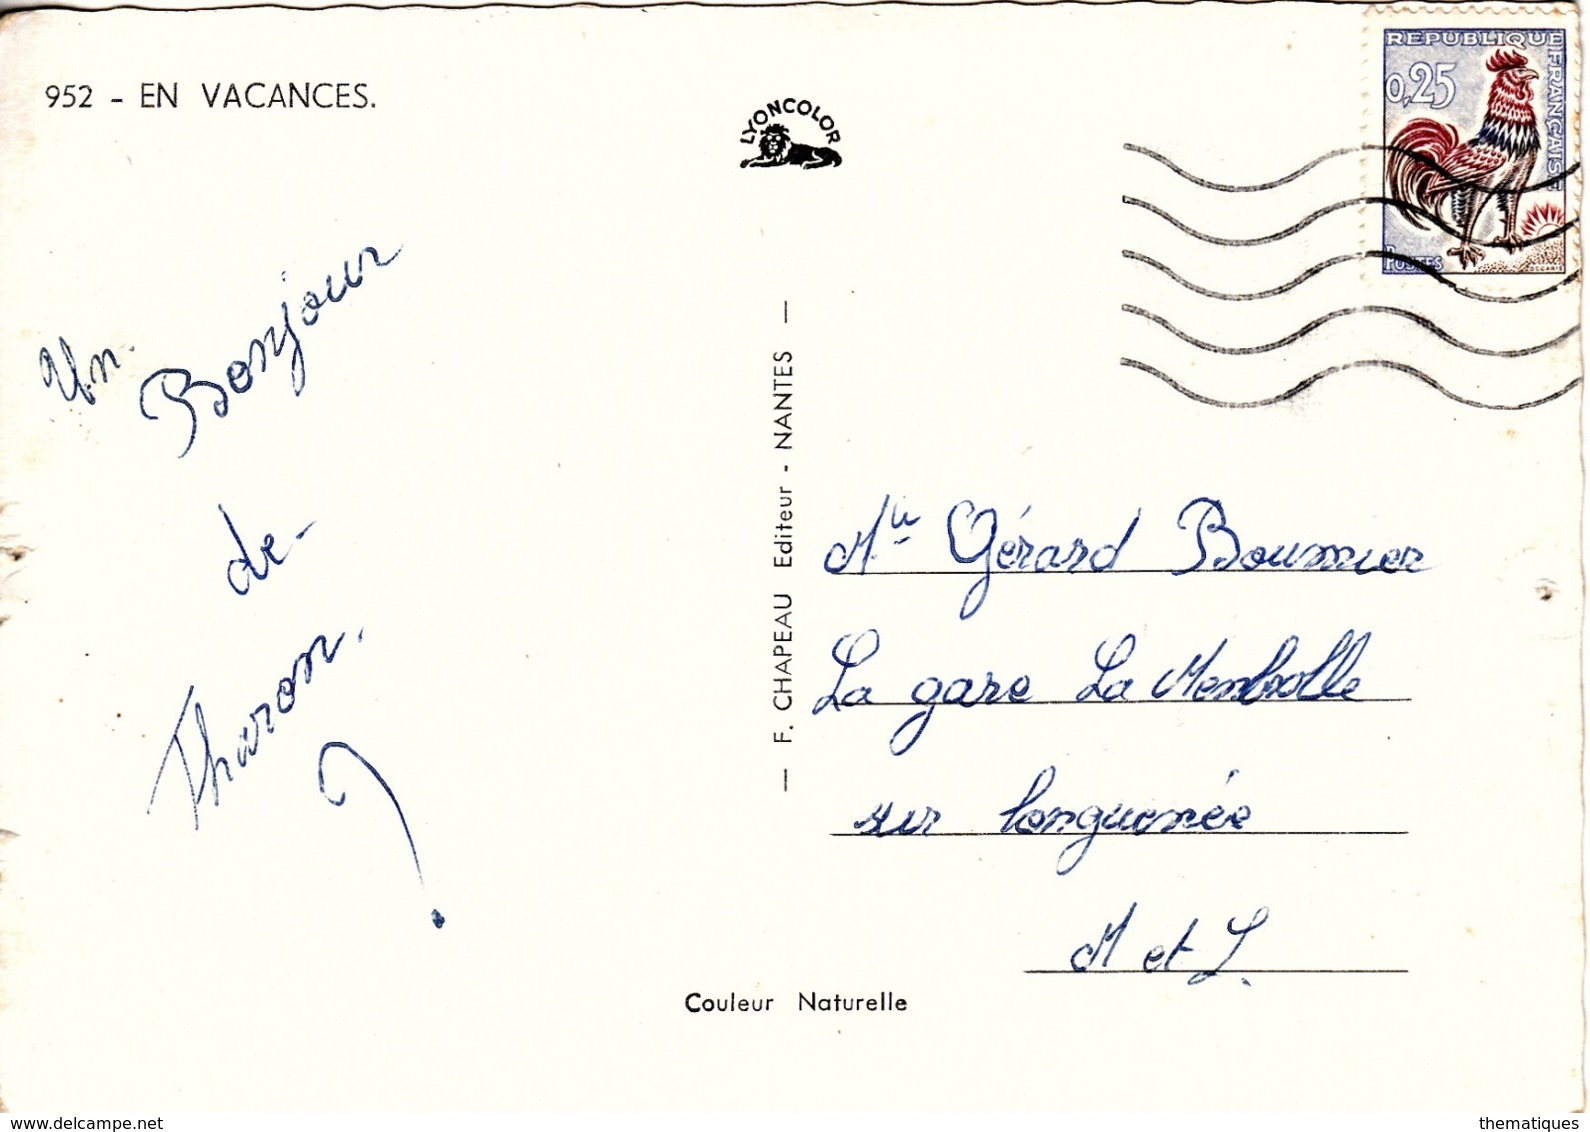 952 - EN VACANCES.
LYONCOLOR
REPUBLIQUE FRANÇAISE
0,25
POSTES
DECARIS
Un
Bonjour
de
Tharon.
— F. CHAPEAU Editeur - NANTES —
Mlle Gérard Boumier
La gare La Membrolle
sur longuenée
M et L.
Couleur Naturelle
www.delcampe.net
thematiques